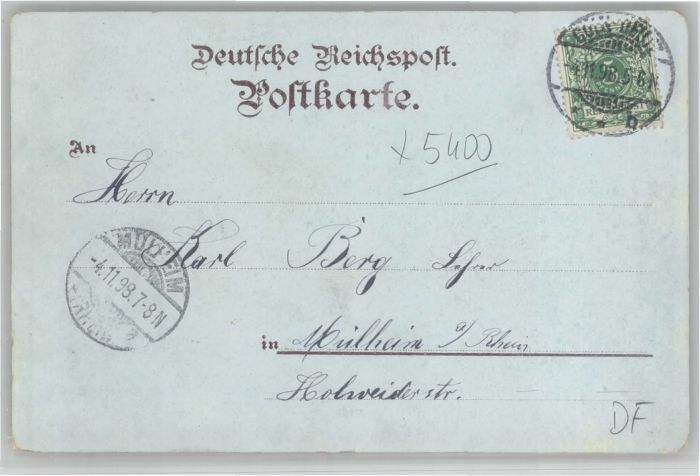 Deutsche Reichspost.
Postkarte.
An
x 5400
Herrn
Karl Berg Lehrer
in Mülheim a/Rhein
Holweiderstr.
DF
4.11.98. 5-6 N
b
MÜLHEIM
-4.11.98.7-8N
(RHEIN)